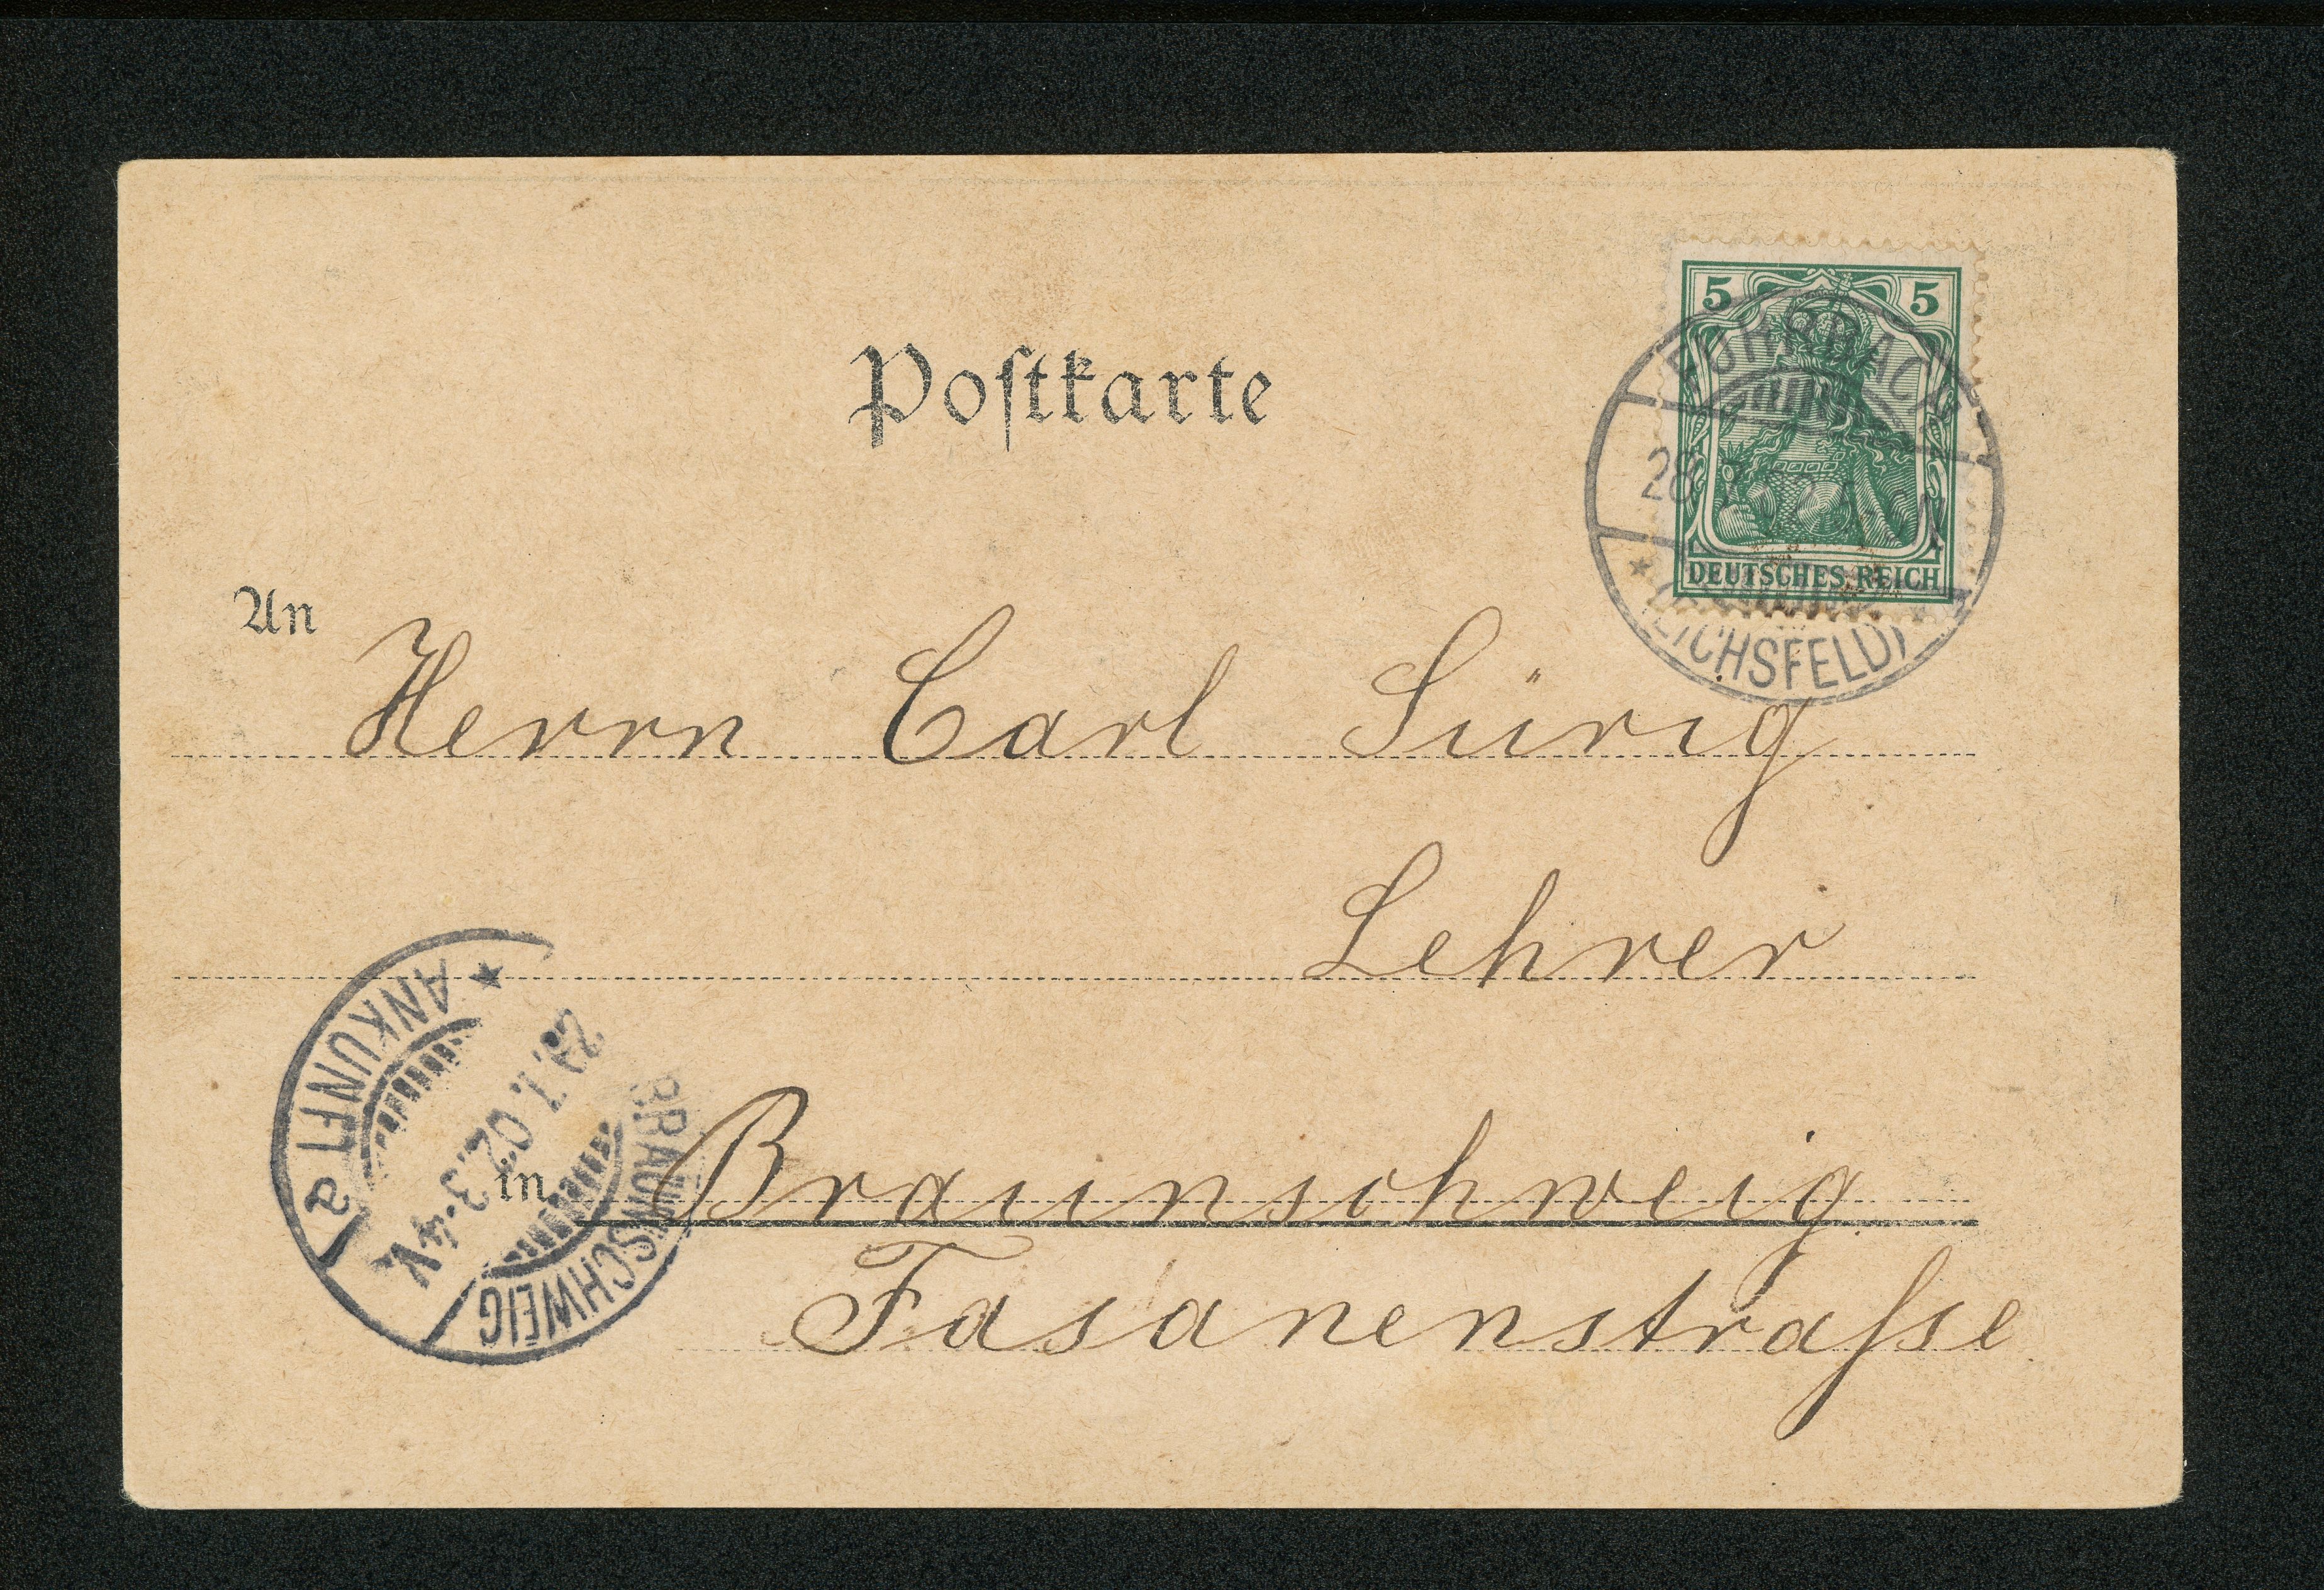 5 5
FUHRBACH
28.7
DEUTSCHES REICH
(EICHSFELD)
Postkarte
An
Herrn Carl Sürig
Lehrer
in Braunschweig
Fasanenstraſse
* ANKUNFT a
29.7.02. 3-4V.
BRAUNSCHWEIG